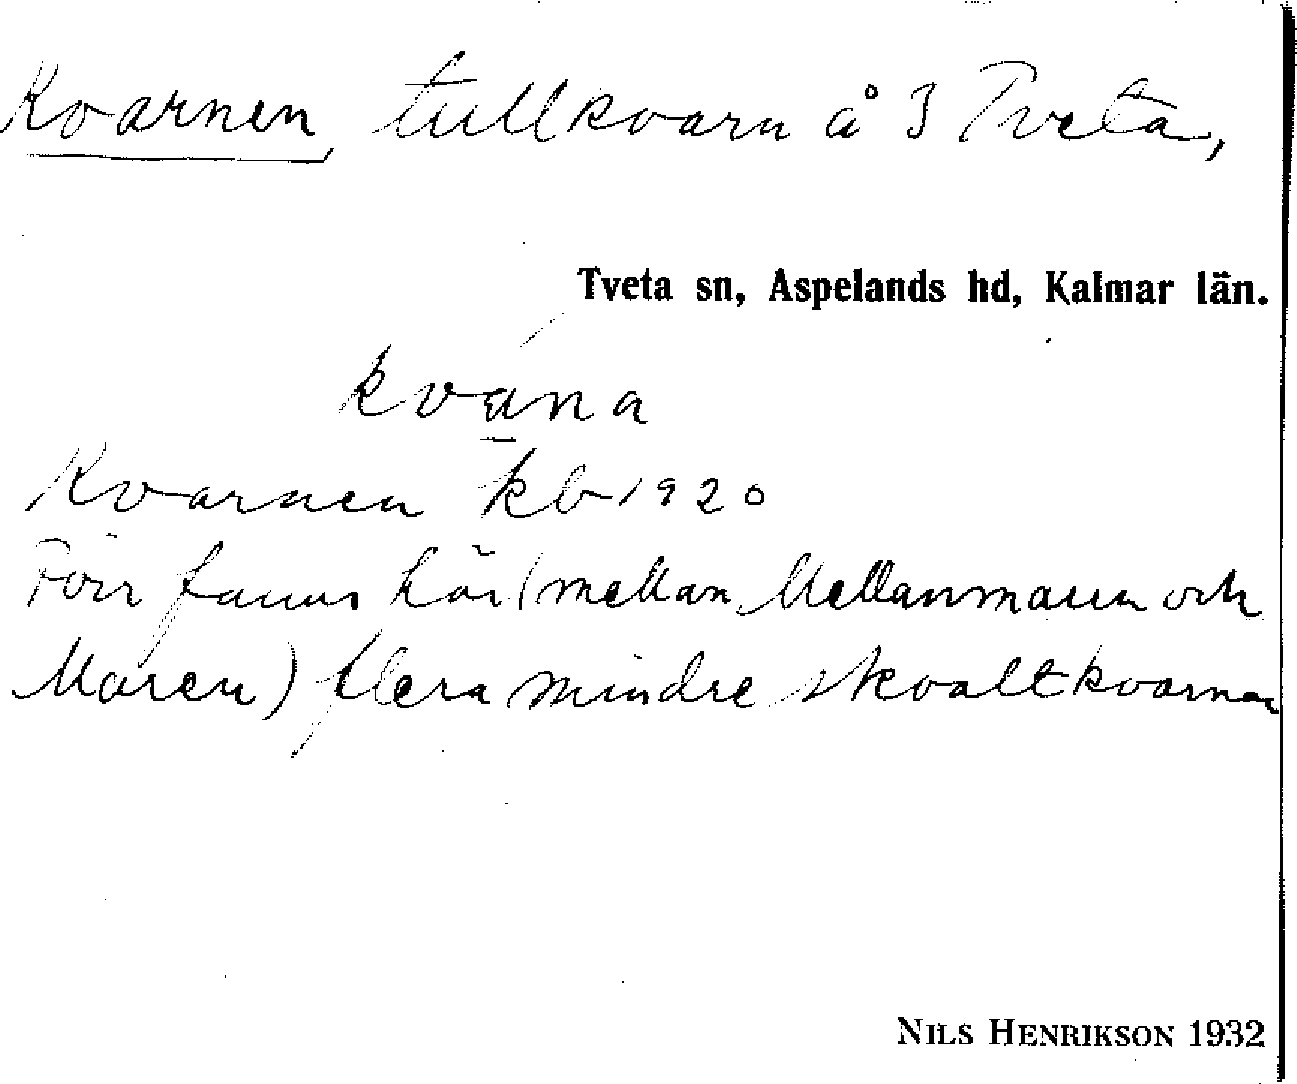 Kvarnen, tullkvarn å 3 Tveta,
Tveta sn, Aspelands hd, Kalmar län.
kvána
Kvarnen kb 1920
Förr fanns här (mellan Mellanmaren och
Maren) flera mindre skvaltkvarnar
NILS HENRIKSON 1932